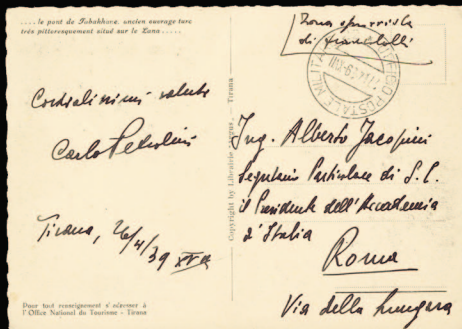 .... le pont de Tabakhane, ancien ouvrage turc
très pittoresquement situé sur le Lana .....
Cordialissimi saluti
Carlo Petrolini
Tirana, 26/4/39 XVII
Pour tout renseignement s'adresser à
l'Office National du Tourisme - Tirana
Copyright by Librairie Argus, Tirana
Zona sprovvista
di francobolli
POSTALE MILIT
Ing. Alberto Jacopini
Segretario Particolare di S. E.
il Presidente dell'Accademia
d'Italia
Roma
Via della Lungara